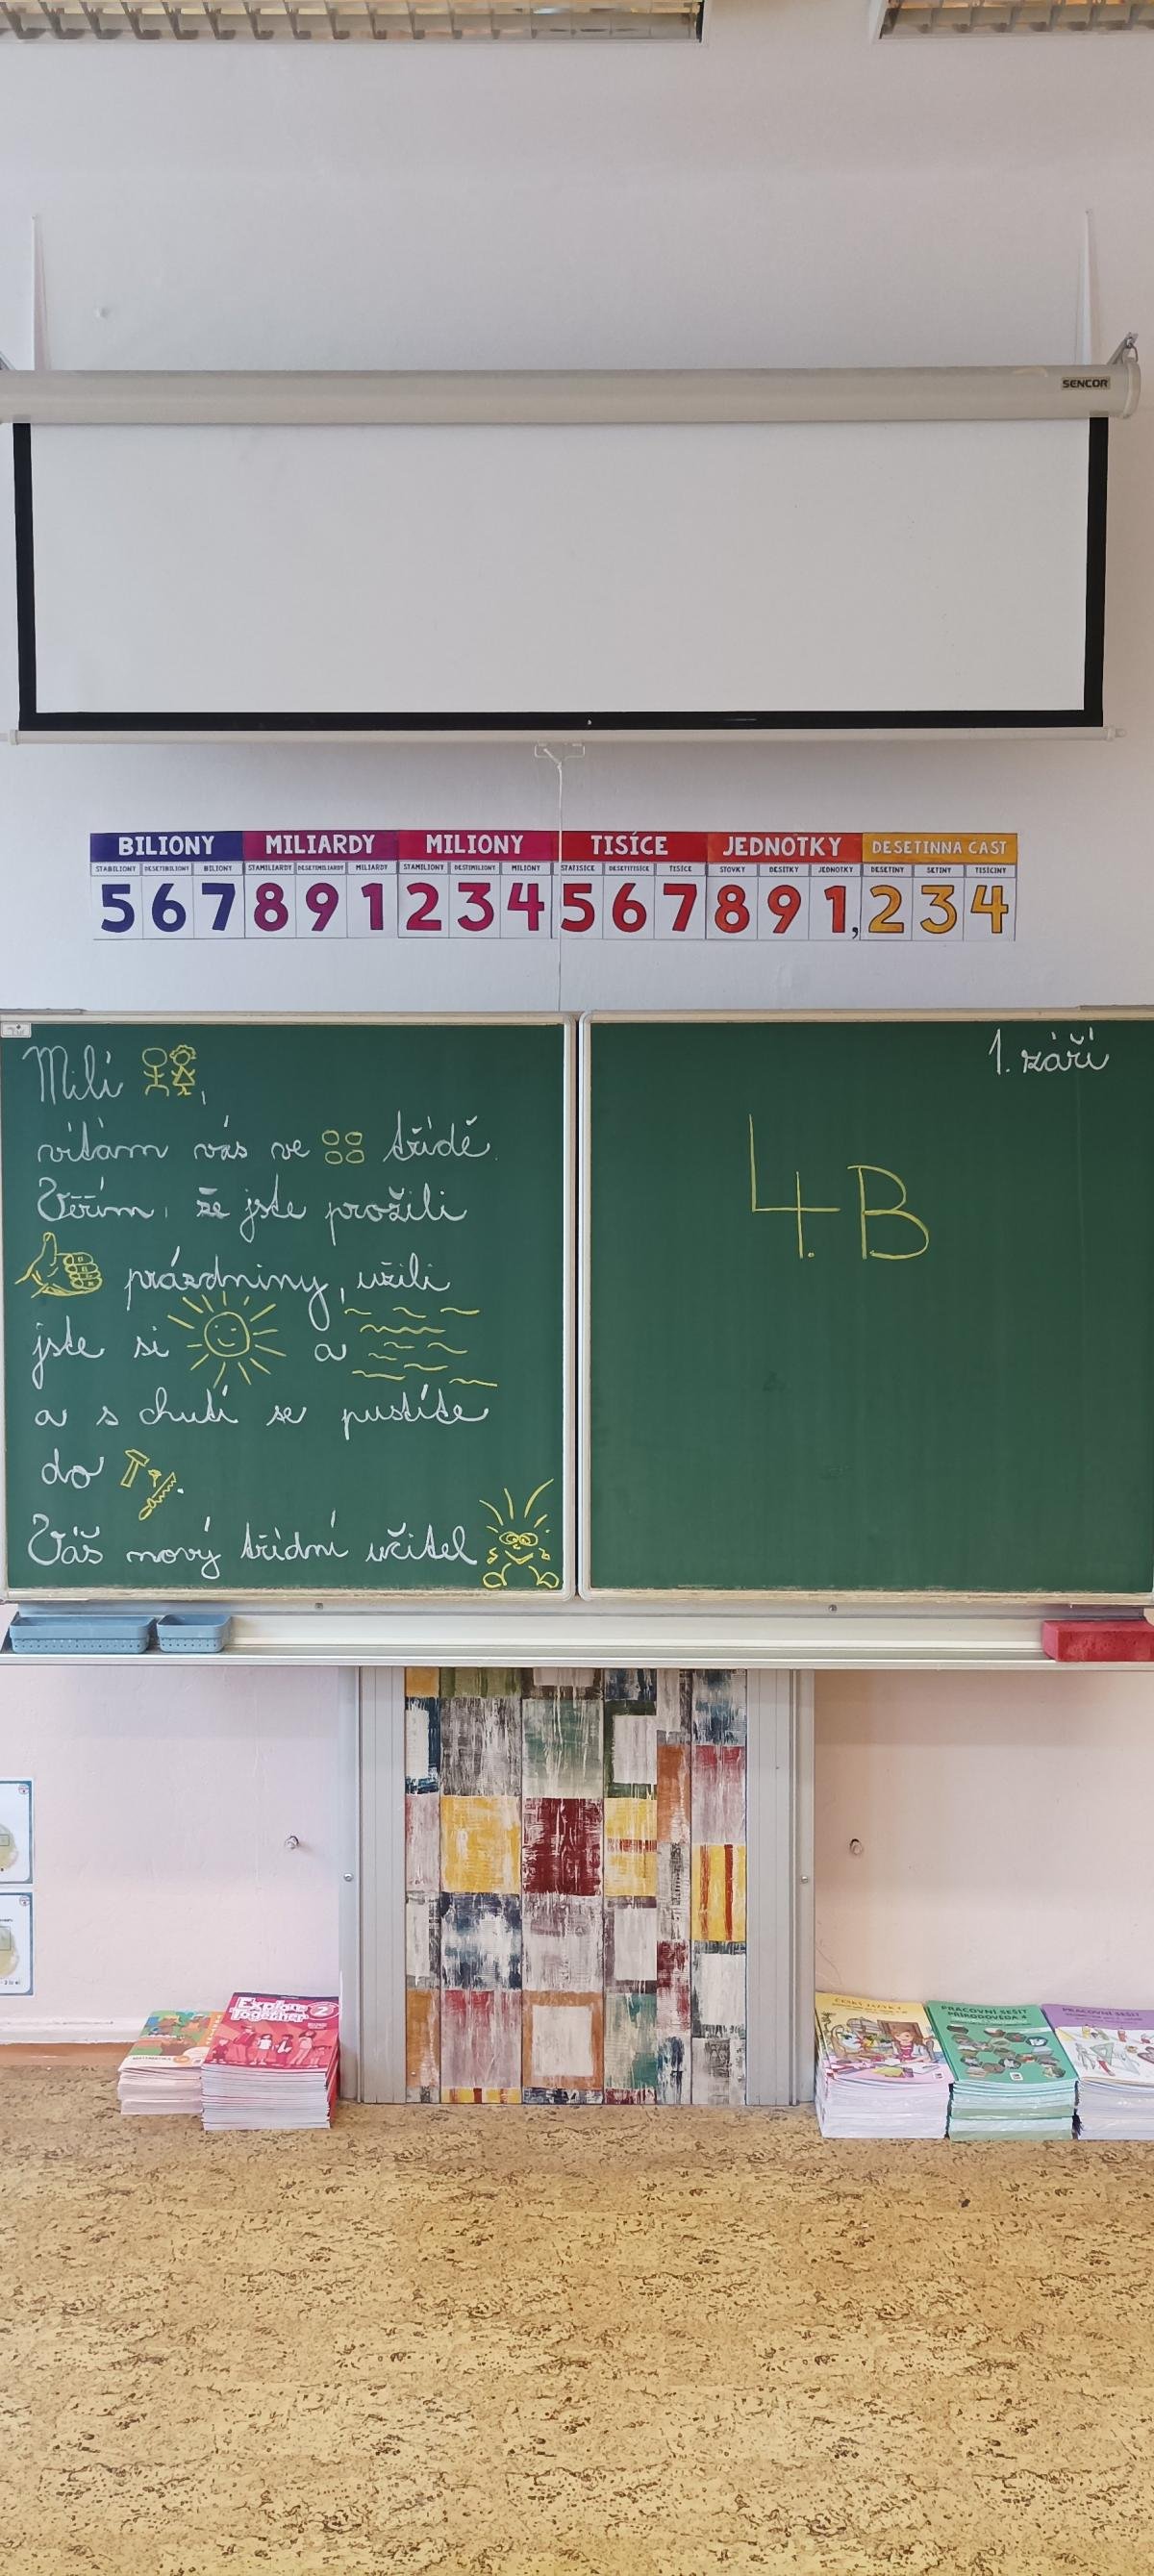 SENCOR
BILIONY MILIARDY MILIONY TISÍCE JEDNOTKY DESETINNÁ ČÁST
STABILIONY DESETIBILIONY BILIONY STAMILIARDY DESETIMILIARDY MILIARDY STAMILIONY DESTIMILIONY MILIONY STATISÍCE DESETITISÍCE TISÍCE STOVKY DESÍTKY JEDNOTKY DESETINY SETINY TISÍCINY
5 6 7 8 9 1 2 3 4 5 6 7 8 9 1, 2 3 4
Milí ,
vítám vás ve třídě.
Věřím, že jste prožili
prázdniny, užili
jste si a
a s chutí se pustíte
do .
Váš nový třídní učitel
1. září
4.B
Explore
Together 2
MATEMATIKA
ČESKÝ JAZYK 4
PRACOVNÍ SEŠIT
PŘÍRODOVĚDA 4
PRACOVNÍ SEŠIT